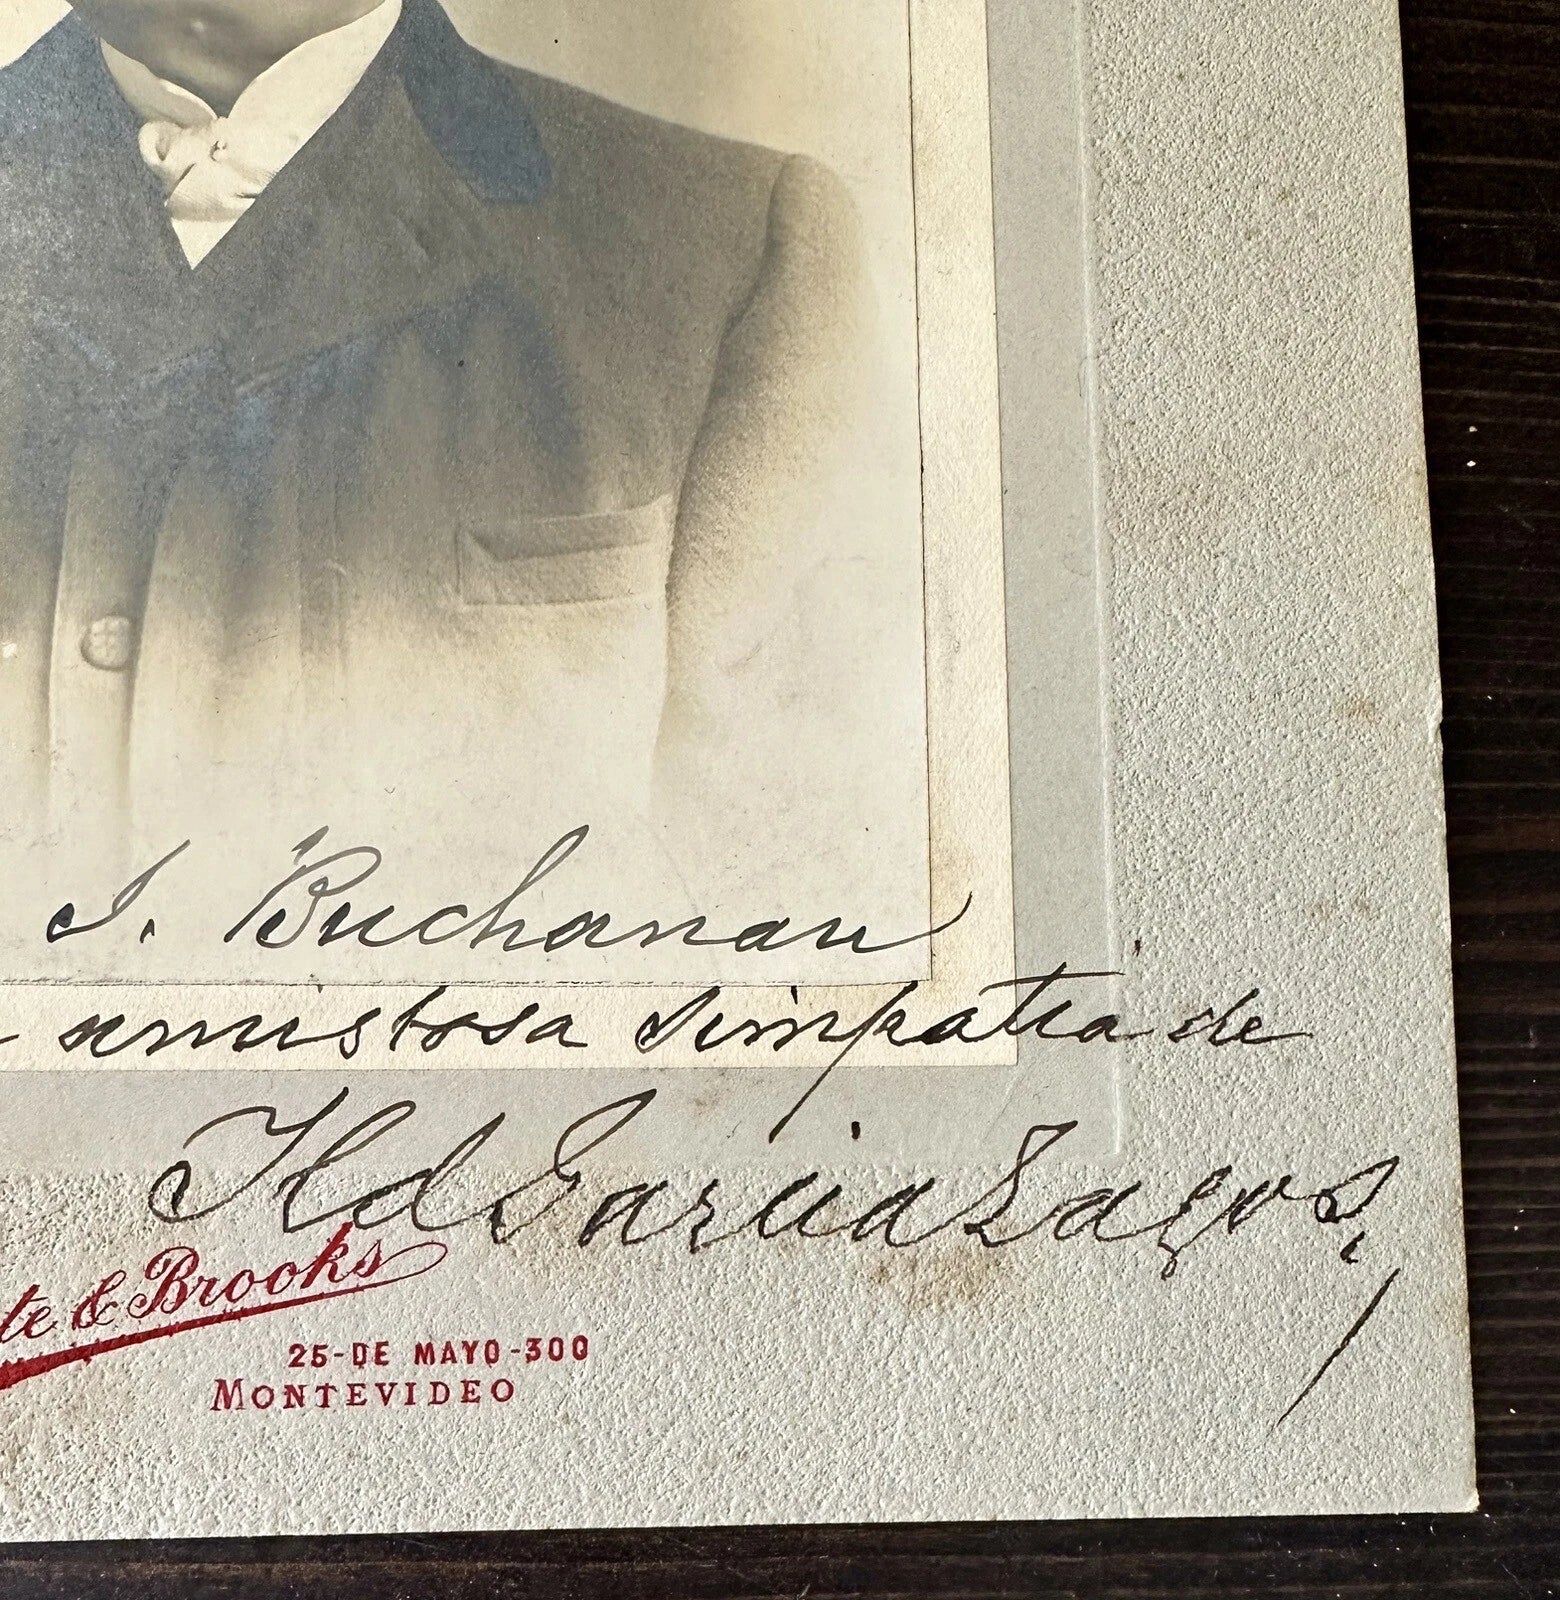 I. Buchanan
amistosa simpatia de
Ild Garcia Lagos,
te & Brooks
25-DE MAYO-300
MONTEVIDEO